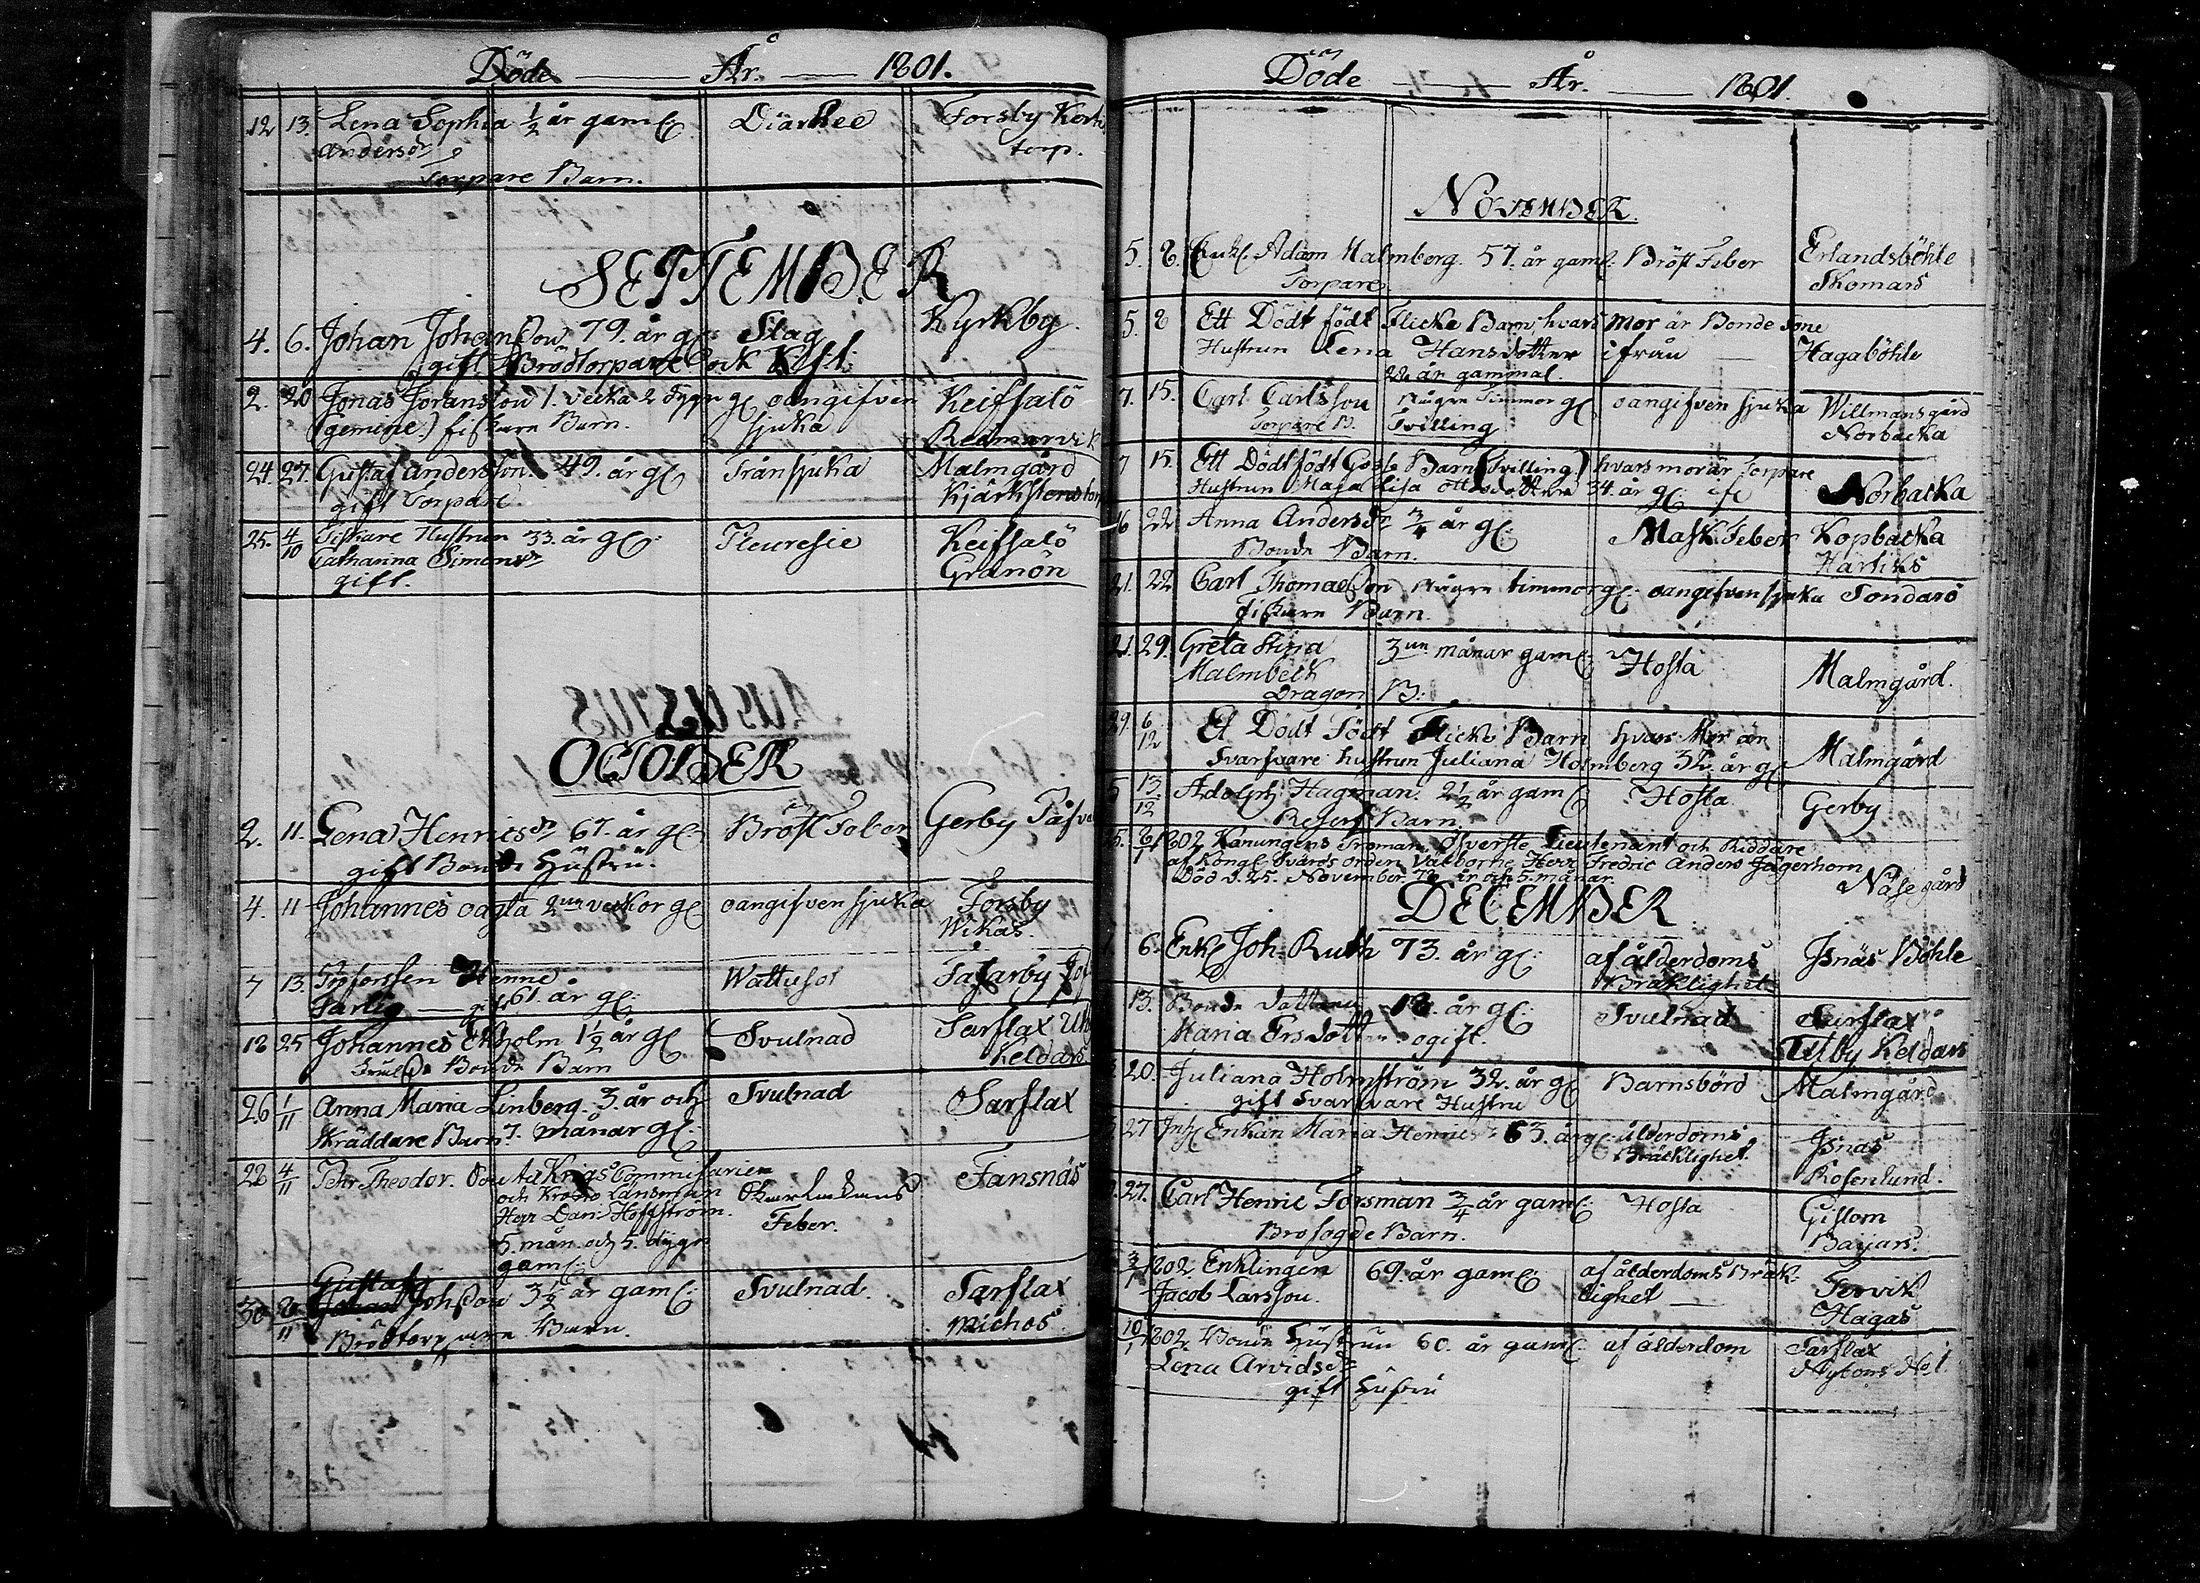 Döde — År. — 1801.
12 13. Lena Sophia ½ år gaml Diarhee Forsby
Andersdr torp.
Torpare Barn.
SEPTEMBER
4. 6. Johan Johansson 79. år gl: Slag Kyrkby.
gift Brödtorpare
2. 20 Jonas Joransson 1. vecka 2 dygn gl oangifven Keifsalö
(gemene) fiskare Barn. sjuka
24. 27. Gustaf Andersson 49. år gl Trånsjuka Malmgård
gift Torpare.
25. 4/10 Fiskare Hustrun 33. år gl: Pleuresie Keifsalö
Catharina Simonsdr Granön
gift.
OCTOBER
2. 11. Lena Henricsdr 67. år gl Bröst Feber Gerby
gift Bonde Hustru.
4. 11 Johannes oägta 2ne veckor gl oangifven sjuka Forsby
Wikas
7 13. Henric Wattusot
61. år gl:
18 25 Johannes Ekholm 1½ år gl Svulnad Sarflax
Bonde Barn Keldars
26 1/11 Anna Maria Linberg. 3. år och Svulnad Sarflax
Skräddare Barn 7. månar gl:
22 4/11 Pehr Theodor. Krigs Commisarien Fansnäs
och Krono Länsman
Herr Dan: Hoffström. Feber.
5. mån och 5. dygn
gaml:
Gustaf
30. Johsson 3½ år gaml: Svulnad. Sarflax
Brödtorpare Barn. Michos
Döde — År. — 1801.
NOVEMBER.
5. 8. Enkl. Adam Malmberg. 57. år gaml: Bröst Feber Erlandsböhle
Torpare. Skomars
5. 8 Ett Dödt födt Flicke Barn, hvars mor är Bonde Sone
Hustrun Lena Hansdotter ifrån — Hagaböhle
22 år gammal.
7. 15. Carl Carlsson Någre Timmor gl oangifven sjuka Willmansgård
Torpare B. Tvilling Norbacka
7 15. Ett Dödt födt Gosse Barn (Tvilling) hvars mor är Torpare
Hustrun Maja Lisa Ottosdotter 34. år gl: Norbacka
16 22 Anna Andersdr ¾ år gl: Mask Feber Kopbacka
Bonde Barn. Härtiks
21. 22 Carl Thomasson Någre timmor gl: oangifven sjuka Sondarö
fiskare Barn.
21. 29. Greta Stina 3ne månar gaml: Hosta Malmgård.
Malmbeck
Dragon B:
29. 6/12 Et Dödt Födt Flicke Barn hvars Mor är
Svarfvare hustrun Juliana Holmberg 32. år gl Malmgård
13/12 Adolph Hagman. 2½ år gaml Hosta Gerby
Barn
25. 6/1 1802 Konungens Troman Öfverste Lieutenant och Riddare
af Kongl Svärds orden Välborne Herr Fredric Anders Jägerhorn
Död d. 25. November 72 år och 5. månar. Näse gård
DECEMBER
6. Enkl Joh. Ruth 73. år gl: af ålderdoms Isnäs Böhle
Bräklighet
13. Bonde Dottren 18. år gl: Svulnad Sarflax
Maria Ersdotter ogift. Keldars
20. Juliana Holmström 32. år gl Barnsbörd Malmgård
gift Svarfvare Hustru
27 Enkan Maria Henricsdr 63. år gl: ålderdoms Isnäs
Bräcklighet Rosenlund.
27. Carl Henric Forsman ¾ år gaml: Hosta Gislom
Brofogde Barn. Baijars.
3/1 1802 Enklingen 69. år gaml: af ålderdoms Bräk-
Jacob Larsson. lighet — Tervik
Hagas
10/1 1802 Bonde Hustrun 60. år gaml: af ålderdom Sarflax
Lena Arvidsdr Nytons No 1.
gift Hustru